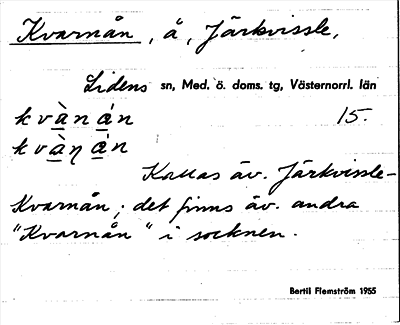 Kvarnån, å, Järkvissle,
Lidens sn, Med. ö. doms. tg, Västernorrl. län
kvàn án 15.
kvàŋ án
Kallas äv. Järkvissle-
Kvarnån; det finns äv. andra
"Kvarnån" i socknen.
Bertil Flemström 1955